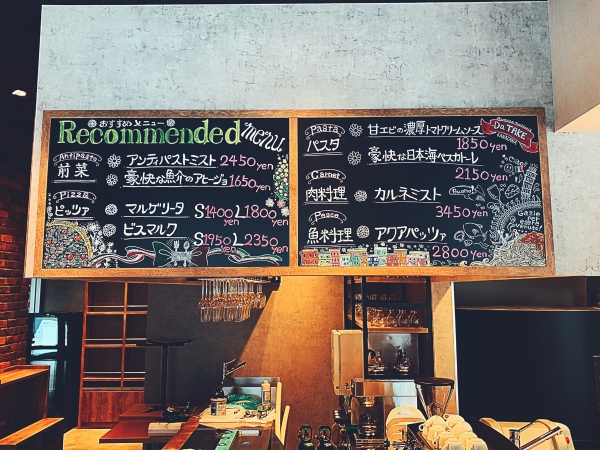 おすすめメニュー
Recommended menu
Antipasto
前菜
アンティパストミスト 2450yen
豪快な魚介のアヒージョ 1650yen
Pizza
ピッツァ
マルゲリータ S1400yen L1800yen
ビスマルク S1950yen L2350yen
Pasta
パスタ
甘エビの濃厚トマトクリームソース
1850yen
豪快な日本海ペスカトーレ
2150yen
Carnet
肉料理
カルネミスト
3450yen
Pesce
魚料理
アクアパッツァ
2800yen
Da TAKE
KANAZAWA
Ciao!
Buono!
Grazie